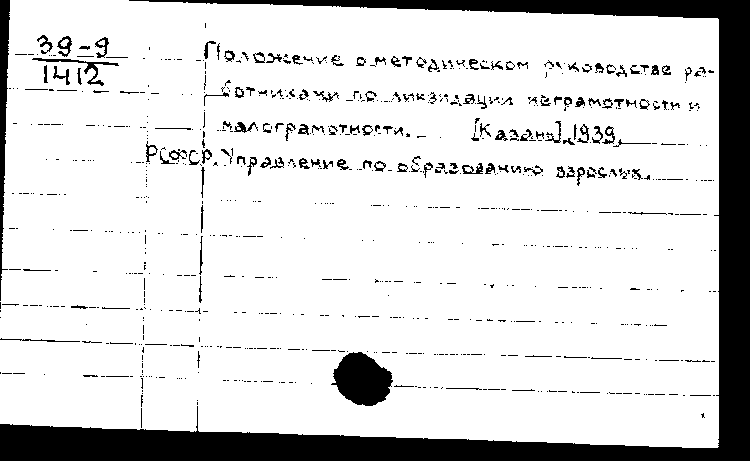 39-9
1412
Положение о методическом руководстве ра-
ботниками по ликвидации неграмотности и
малограмотности. - [Казань], 1939.
РСФСР. Управление по образованию взрослых.